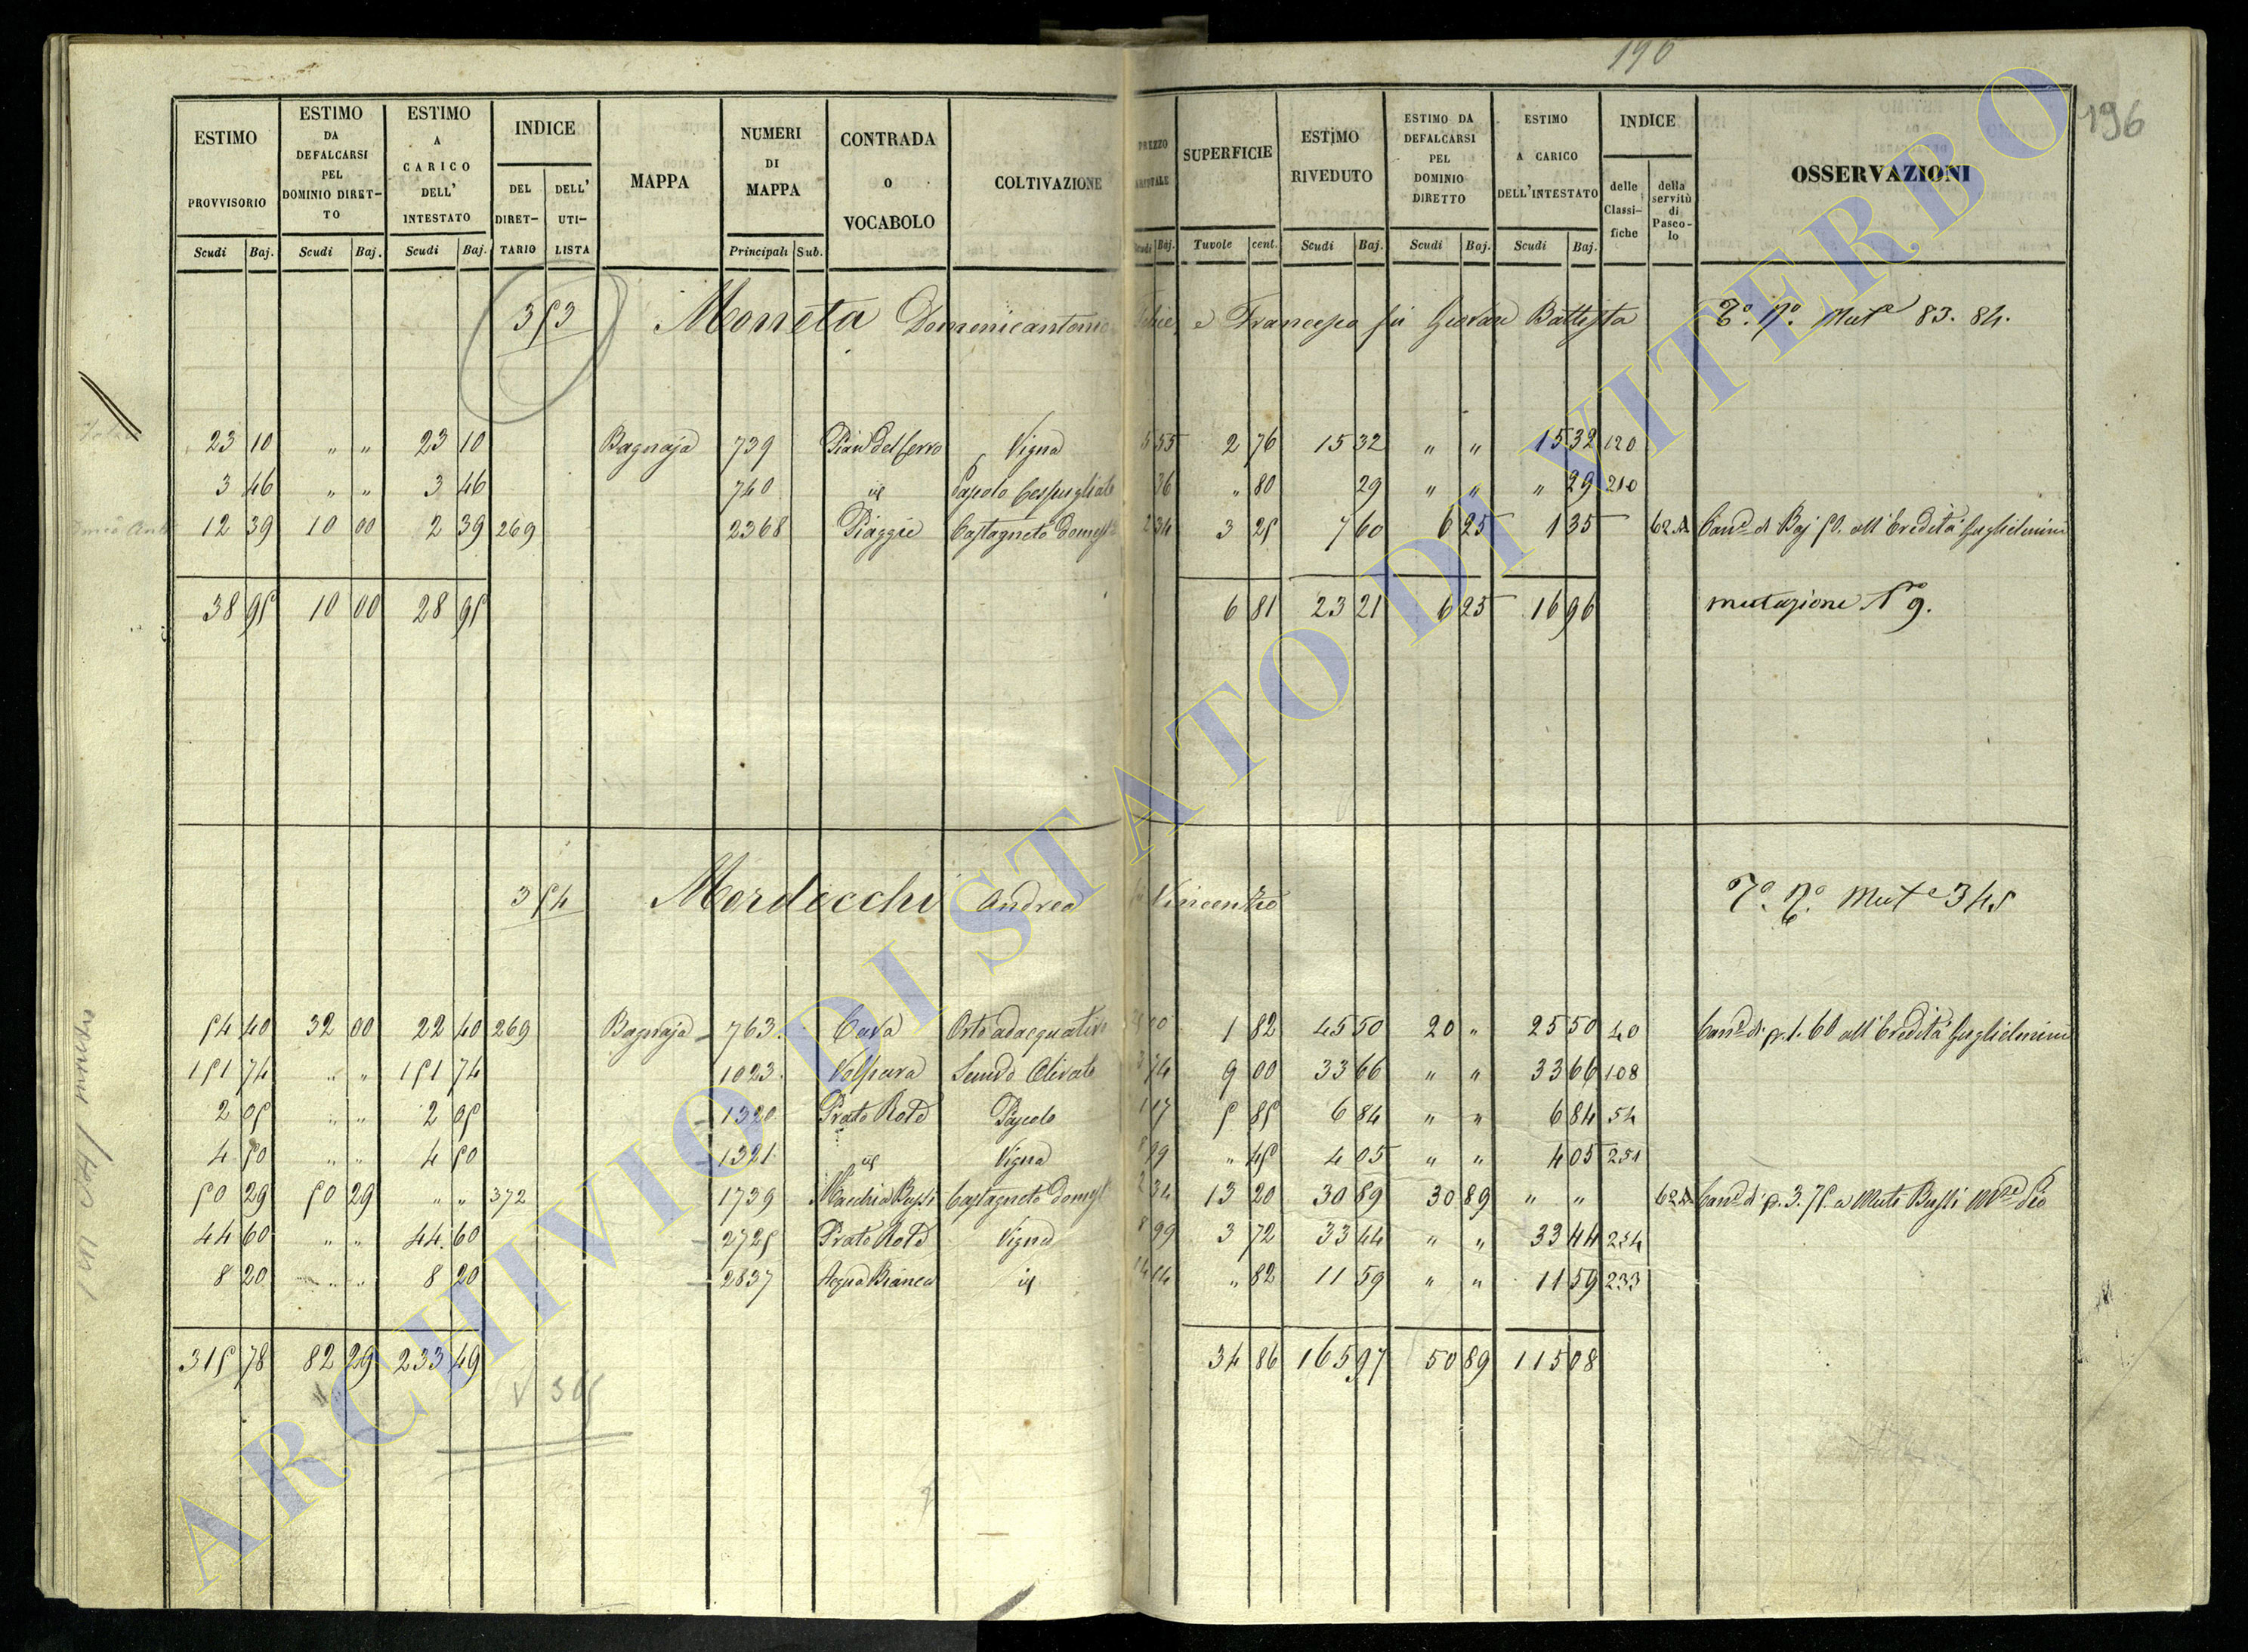 196
196
ESTIMO PROVVISORIO | ESTIMO DA DEFALCARSI PEL DOMINIO DIRET-TO | ESTIMO A CARICO DELL' INTESTATO | INDICE DEL DIRET-TARIO | DELL' UTI-LISTA | MAPPA | NUMERI DI MAPPA | CONTRADA O VOCABOLO | COLTIVAZIONE | SUPERFICIE | ESTIMO RIVEDUTO | ESTIMO DA DEFALCARSI PEL DOMINIO DIRETTO | ESTIMO A CARICO DELL'INTESTATO | INDICE delle Classi-fiche | della servitù di Pasco-lo | OSSERVAZIONI
Scudi Baj. Scudi Baj. Scudi Baj. Principali Sub. Scudi Baj. Tavole cent. Scudi Baj. Scudi Baj. Scudi Baj.
353 Moneta Domenicantonio Felice e Francesco fu Giovan Battista 83. 84.
23 10 " " 23 10 Bagnaja 739 Pian del Cerro Vigna 5 55 2 76 15 32 " " 15 32 120
3 46 " " 3 46 740 id Pascolo Cespugliato 36 " 80 29 " " " 29 210
12 39 10 00 2 39 269 2368 Piaggie Castagneto Domest 2 34 3 25 7 60 6 25 1 35 62 Can.e di Baj 50. all'Eredità Guglielmini
38 95 10 00 28 95 6 81 23 21 6 25 16 96 mutazione N 9.
354 Mordecchi Andrea fu Vincenzo 345
54 40 32 00 22 40 269 Bagnaja 763 Cava Orto adacquativo 10 1 82 45 50 20 " 25 50 40 Can.e di 1. 60 all'Eredità Guglielmini
151 74 " " 151 74 1023 Volpara Semvo Olivato 3 74 9 00 33 66 " " 33 66 108
2 05 " " 2 05 1320 Prato Rotd Pascolo 1 17 5 85 6 84 " " 6 84 54
4 50 " " 4 50 1321 id Vigna 8 99 " 45 4 05 " " 4 05 251
50 29 50 29 " " 372 1739 Macchia Bussi Castagneto Domest 2 34 13 20 30 89 30 89 " " 62 Can.e di 3. 75. a Muti Bussi
44 60 " " 44 60 2725 Prato Rotd Vigna 8 99 3 72 33 44 " " 33 44 254
8 20 " " 8 20 2837 Acqua Bianca id 14 14 " 82 11 59 " " 11 59 233
315 78 82 29 233 49 34 86 165 97 50 89 115 08
ARCHIVIO DI STATO DI VITERBO